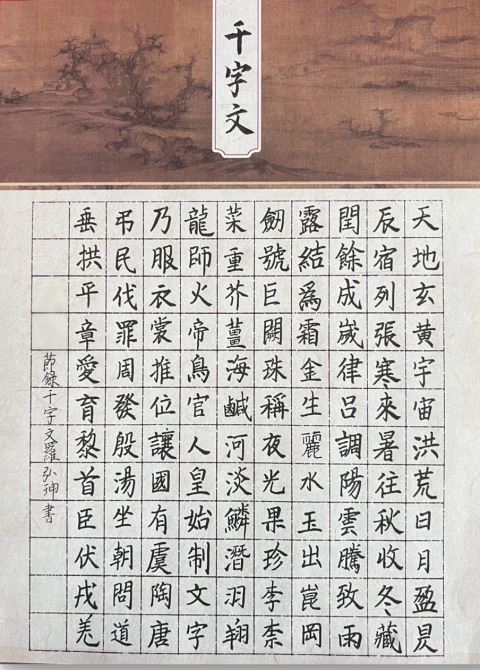 千字文
天地玄黃宇宙洪荒日月盈昃
辰宿列張寒來暑往秋收冬藏
閏餘成歲律呂調陽雲騰致雨
露結爲霜金生麗水玉出崑岡
劒號巨闕珠稱夜光果珍李柰
菜重芥薑海鹹河淡鱗潛羽翔
龍師火帝鳥官人皇始制文字
乃服衣裳推位讓國有虞陶唐
吊民伐罪周發殷湯坐朝問道
垂拱平章愛育黎首臣伏戎羌
節錄千字文羅弘神書